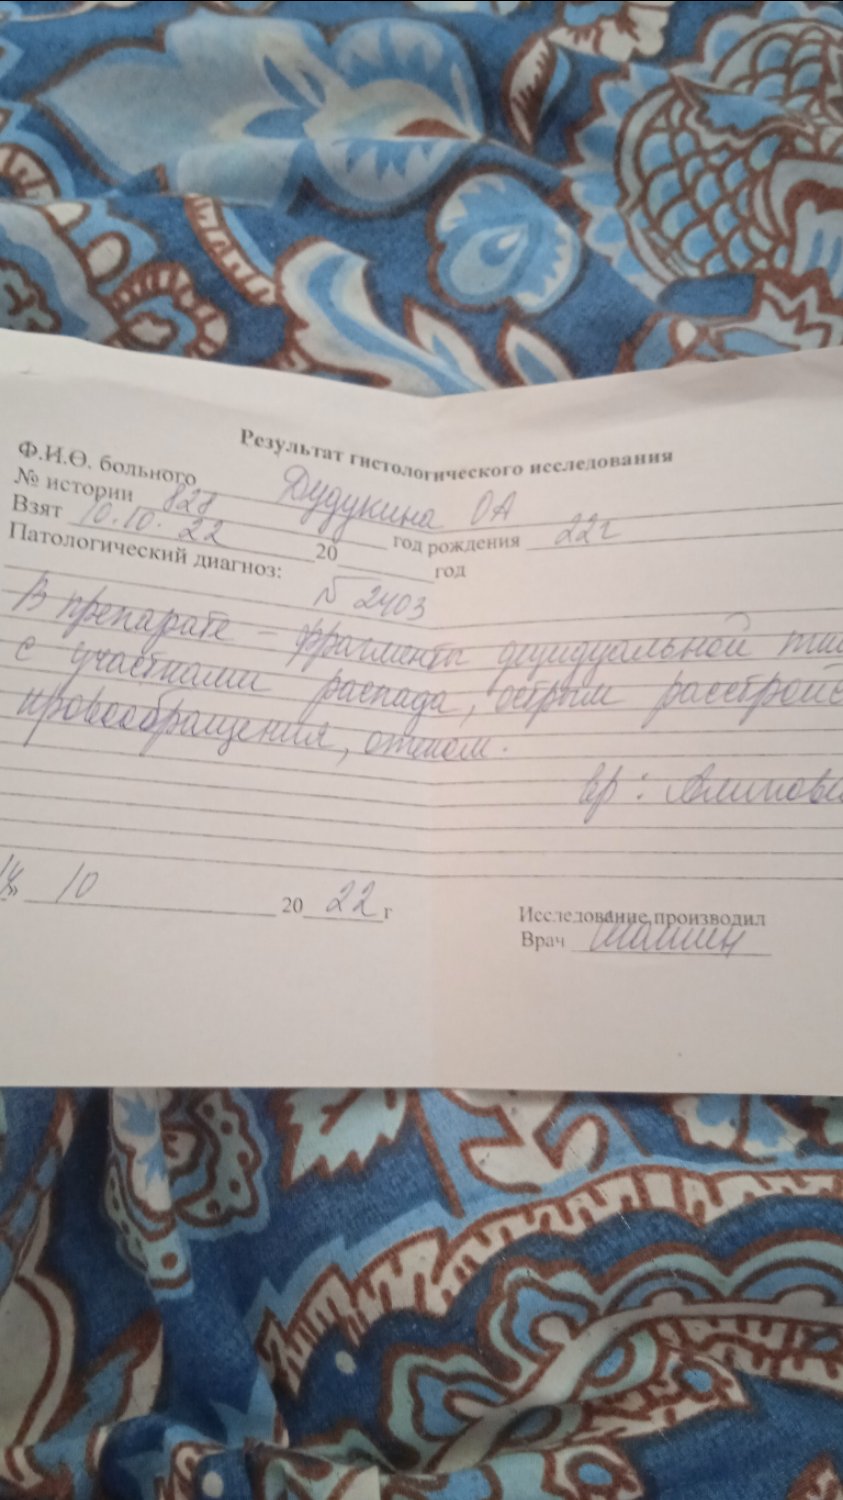 Результат гистологического исследования
Ф.И.О. больного Дудукина ОА
№ истории 828 год рождения 22г
Взят 10.10.22 20 год
Патологический диагноз: № 2403
В препарате – фрагменты децидуальной
с участками распада, острым расстройс
кровообращения, отеком.
вр:
10 2022 г
Исследование производил
Врач